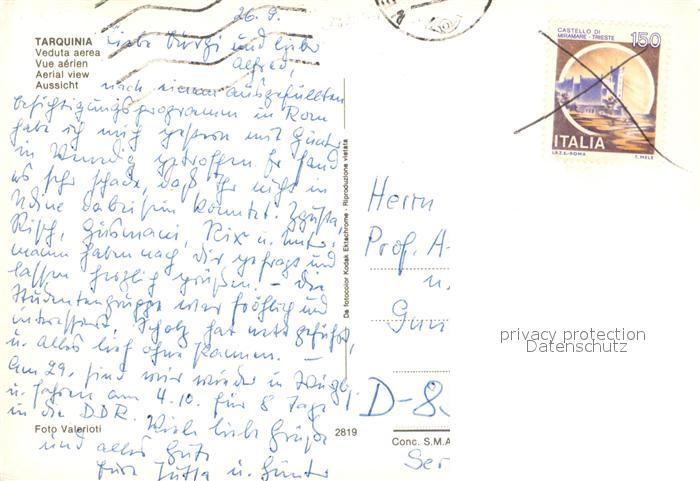 26. 9.
TARQUINIA
Veduta aerea
Vue aérien
Aerial view
Aussicht
Liebe Burgi und lieber
Alfred,
nach einem ausgefüllten
Besichtigungsprogramm in Rom
habe ich mich gestern mit Günter
in Venedig getroffen. Er fand
es sehr schade, daß Ihr nicht in
Udine dabei sein konntet.
Risch, Gusmani, Rix u. Unter-
mann haben nach Dir gefragt und
lassen herzlich grüßen. – Die
Studentengruppe war fröhlich und
interessiert, Scholz hat nett geführt,
u. alles lief ohne Pannen. –
Am 29. sind wir wieder in Würzbg.
u. fahren am 4.10. für 8 Tage
in die DDR. Viele liebe Grüße
und alles Gute
Eure Jutta u. Günter
Foto Valerioti
2819
Da fotocolor Kodak Ektachrome - Riproduzione vietata
Conc. S.M.A
CASTELLO DI
MIRAMARE - TRIESTE
150
ITALIA
I.P.Z.S.-ROMA
T. MELE
Herrn
Prof. A.
u.
D-8
privacy protection
Datenschutz